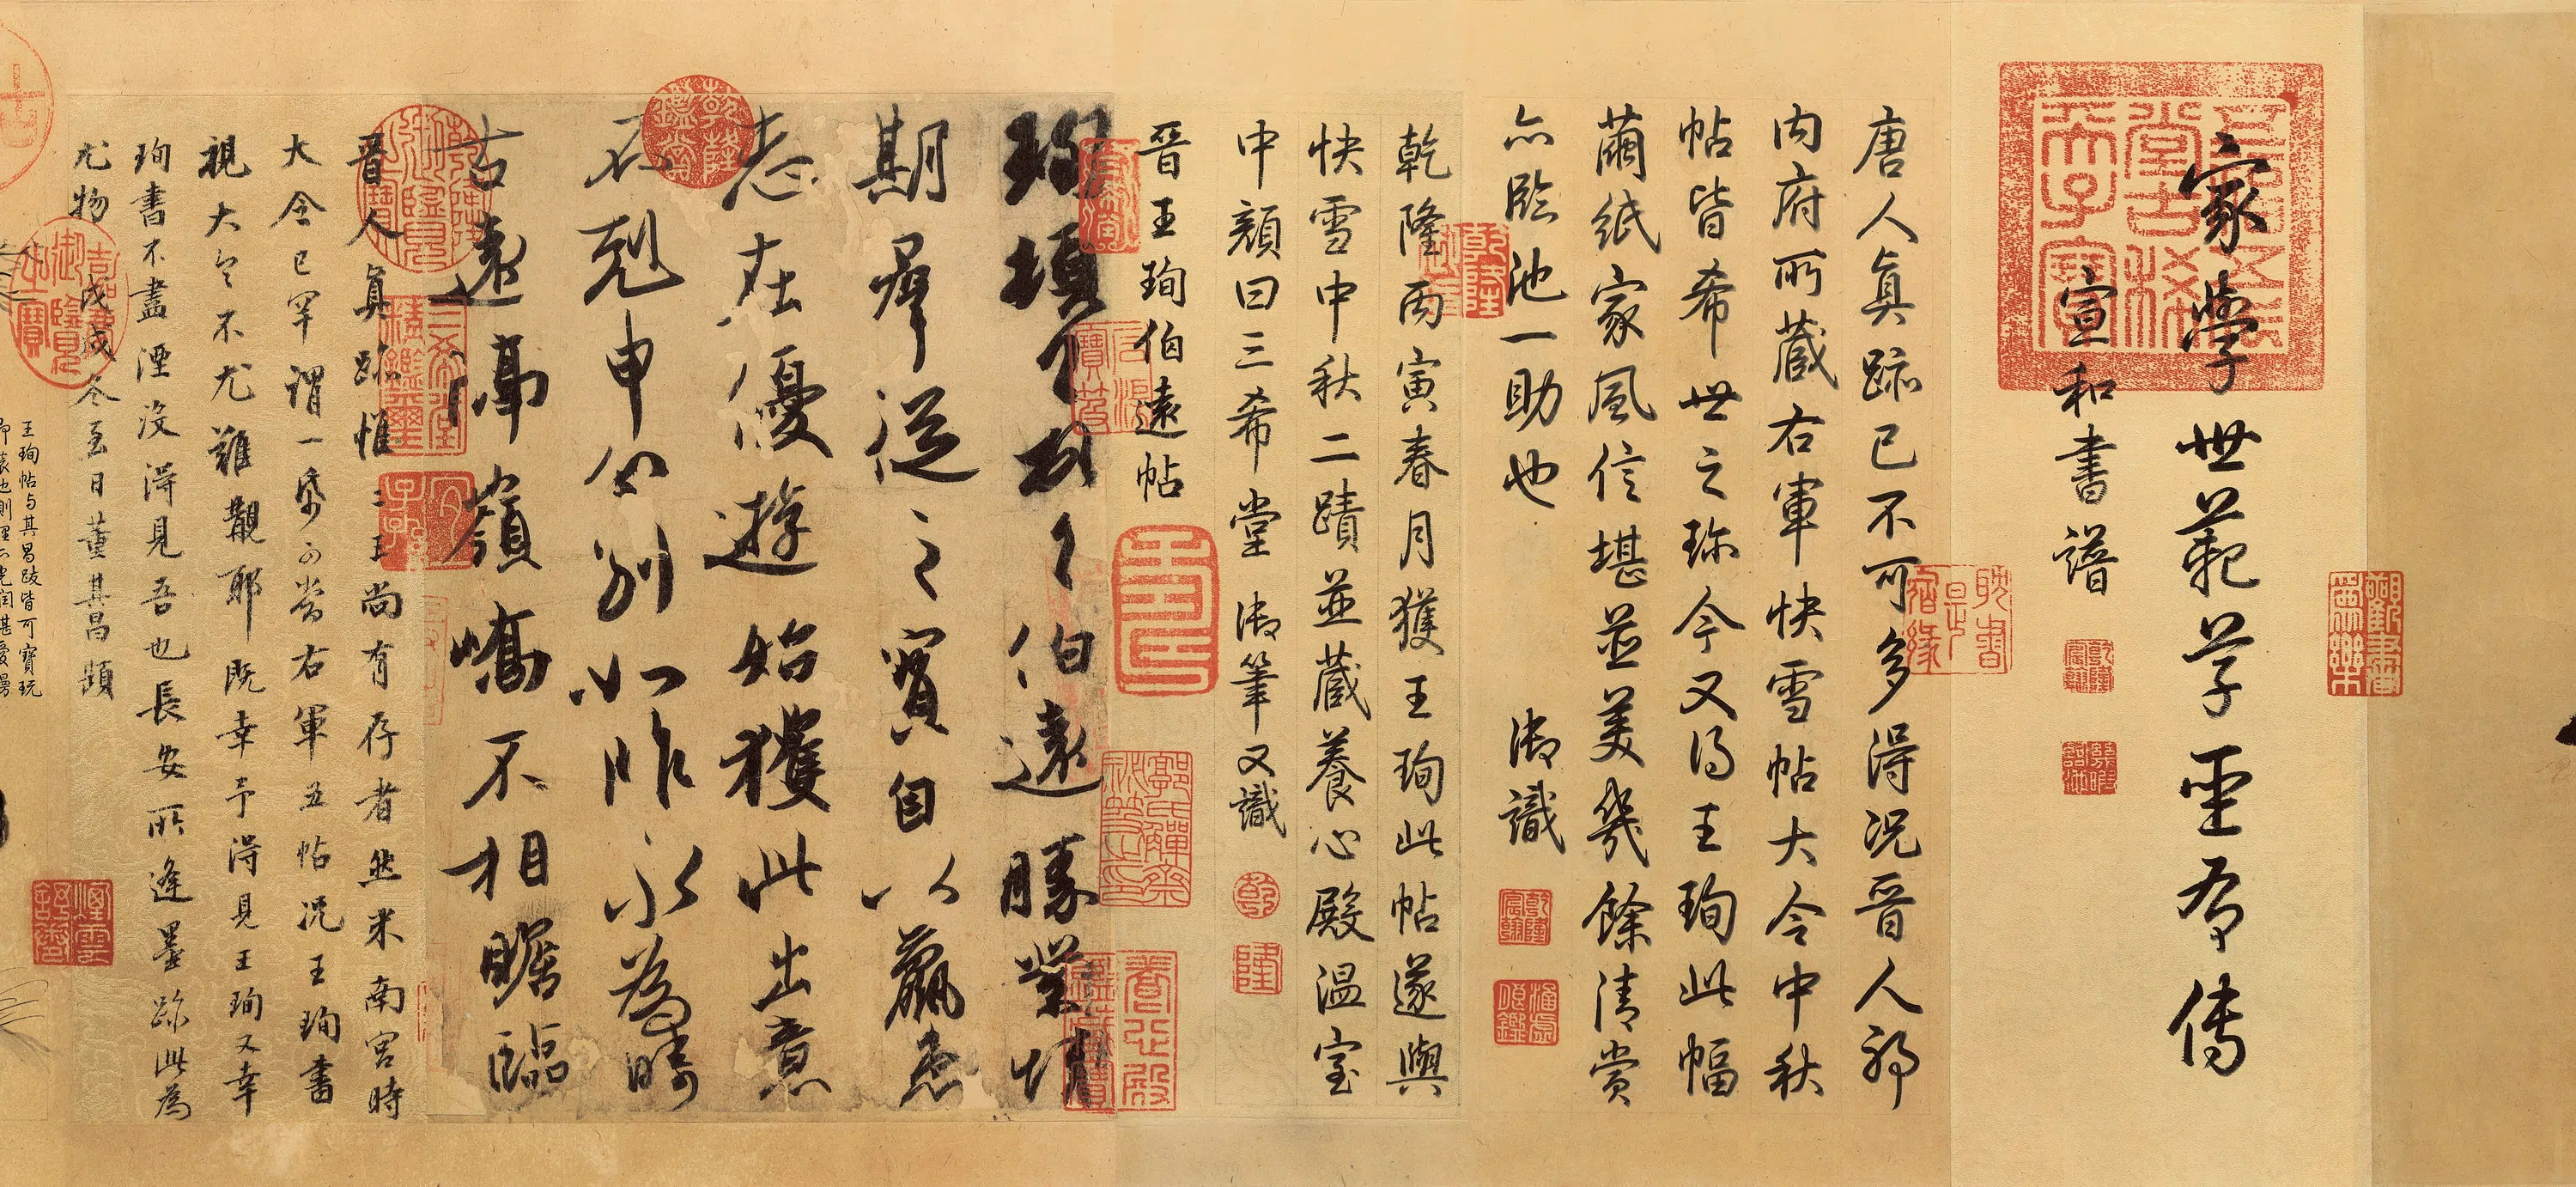 家學世範草聖有傳
宣和書譜
唐人真跡已不可多得況晉人耶
內府所藏右軍快雪帖大令中秋
帖皆希世之珍今又得王珣此幅
繭紙家風信堪並美幾餘清賞
亦臨池一助也 御識
乾隆丙寅春月獲王珣此帖遂與
快雪中秋二蹟並藏養心殿溫室
中顏曰三希堂 御筆又識
晉王珣伯遠帖
珣頓首頓首伯遠勝業情
期群從之寶自以羸患
志在優遊始獲此出意
不剋申分別如昨永為疇
古遠隔嶺嶠不相瞻臨
晉人真跡惟二王尚有存者然米南宮時
大令已罕謂一紙可當右軍五帖況王珣書
視大令不尤難覯耶既幸予得見王珣又幸
珣書不盡湮沒得見吾也長安所逢墨跡此為
尤物 戊戌冬至日董其昌題
王珣帖与其昌跋皆可寶玩